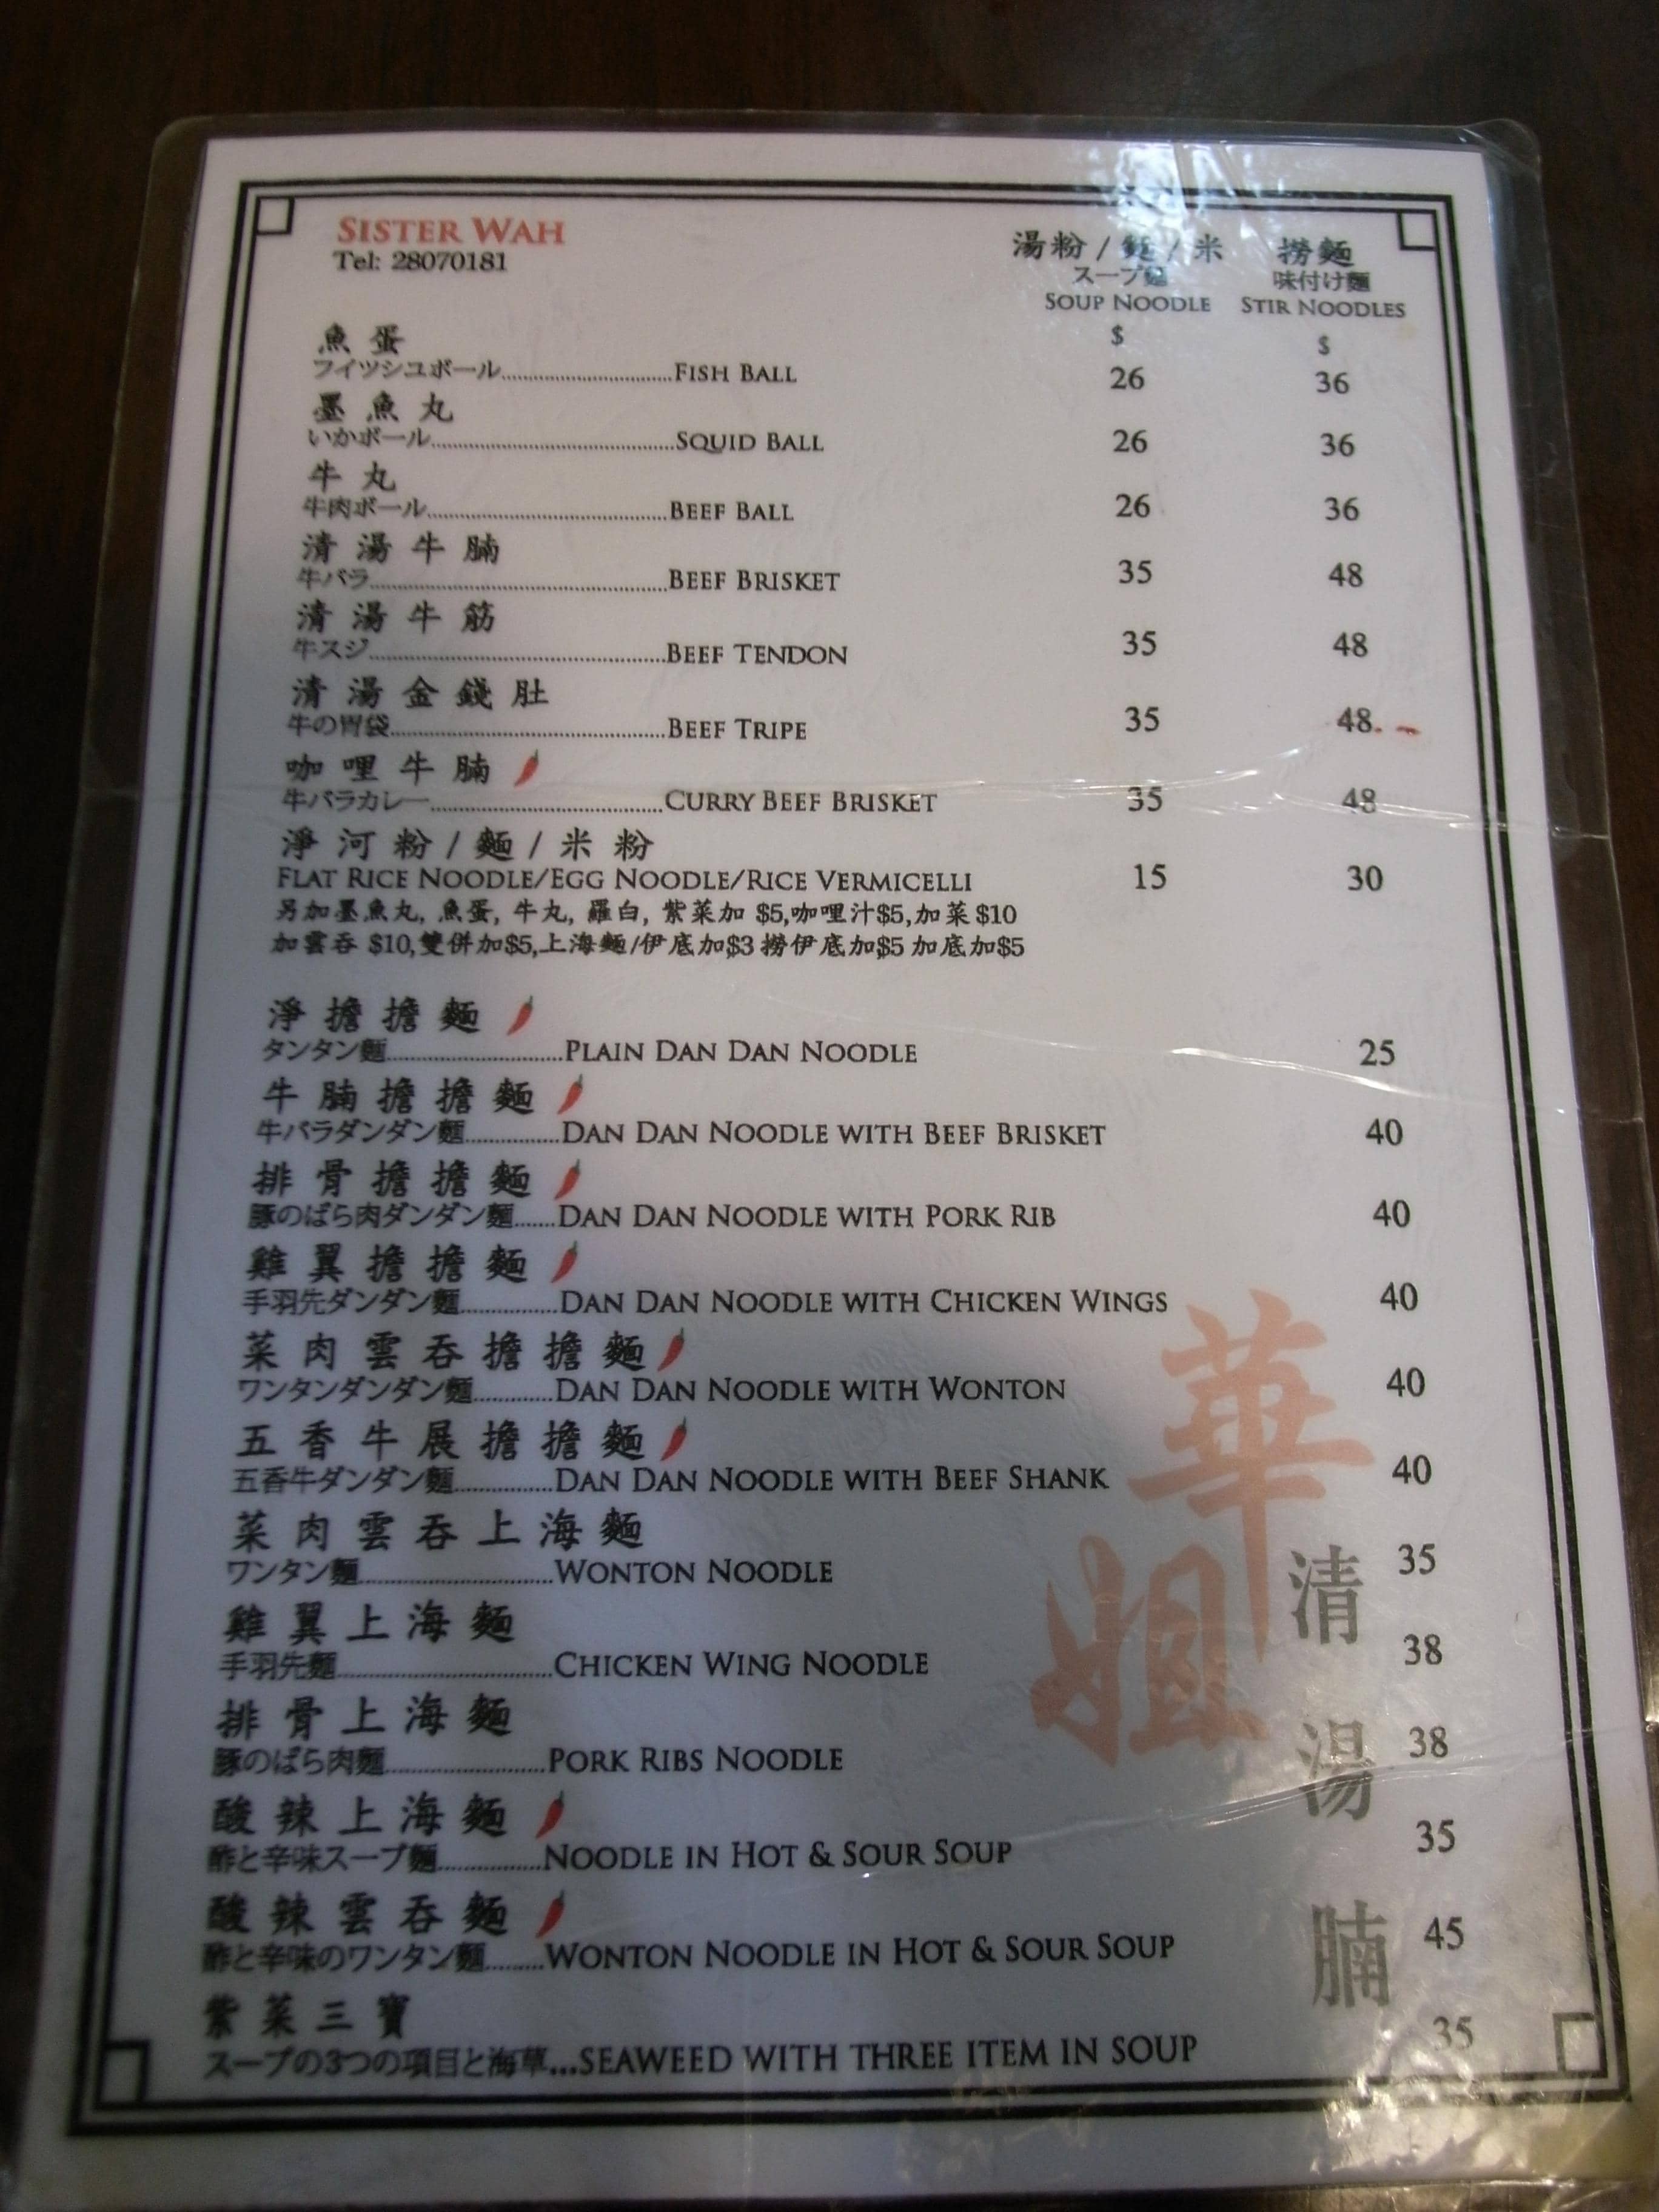 SISTER WAH
Tel: 28070181
湯粉 / 麵 / 米 撈麵
スープ麵 味付け麵
SOUP NOODLE STIR NOODLES
$ $
魚蛋
フイツシユボール..........FISH BALL 26 36
墨魚丸
いかボール..........SQUID BALL 26 36
牛丸
牛肉ボール..........BEEF BALL 26 36
清湯牛腩
牛バラ..........BEEF BRISKET 35 48
清湯牛筋
牛スジ..........BEEF TENDON 35 48
清湯金錢肚
牛の胃袋..........BEEF TRIPE 35 48
咖哩牛腩
牛バラカレー..........CURRY BEEF BRISKET 35 48
淨河粉 / 麵 / 米粉
FLAT RICE NOODLE/EGG NOODLE/RICE VERMICELLI 15 30
另加墨魚丸, 魚蛋, 牛丸, 羅白, 紫菜加 $5,咖哩汁$5,加菜 $10
加雲吞 $10,雙併加$5,上海麵/伊底加$3 撈伊底加$5 加底加$5
淨擔擔麵
タンタン麵..........PLAIN DAN DAN NOODLE 25
牛腩擔擔麵
牛バラダンダン麵..........DAN DAN NOODLE WITH BEEF BRISKET 40
排骨擔擔麵
豚のばら肉ダンダン麵.......DAN DAN NOODLE WITH PORK RIB 40
雞翼擔擔麵
手羽先ダンダン麵..........DAN DAN NOODLE WITH CHICKEN WINGS 40
菜肉雲吞擔擔麵
ワンタンダンダン麵..........DAN DAN NOODLE WITH WONTON 40
五香牛展擔擔麵
五香牛ダンダン麵..........DAN DAN NOODLE WITH BEEF SHANK 40
菜肉雲吞上海麵
ワンタン麵..........WONTON NOODLE 35
雞翼上海麵
手羽先麵..........CHICKEN WING NOODLE 38
排骨上海麵
豚のばら肉麵..........PORK RIBS NOODLE 38
酸辣上海麵
酢と辛味スープ麵..........NOODLE IN HOT & SOUR SOUP 35
酸辣雲吞麵
酢と辛味のワンタン麵.........WONTON NOODLE IN HOT & SOUR SOUP 45
紫菜三寶
スープの3つの項目と海草...SEAWEED WITH THREE ITEM IN SOUP 35
華姐
清湯腩